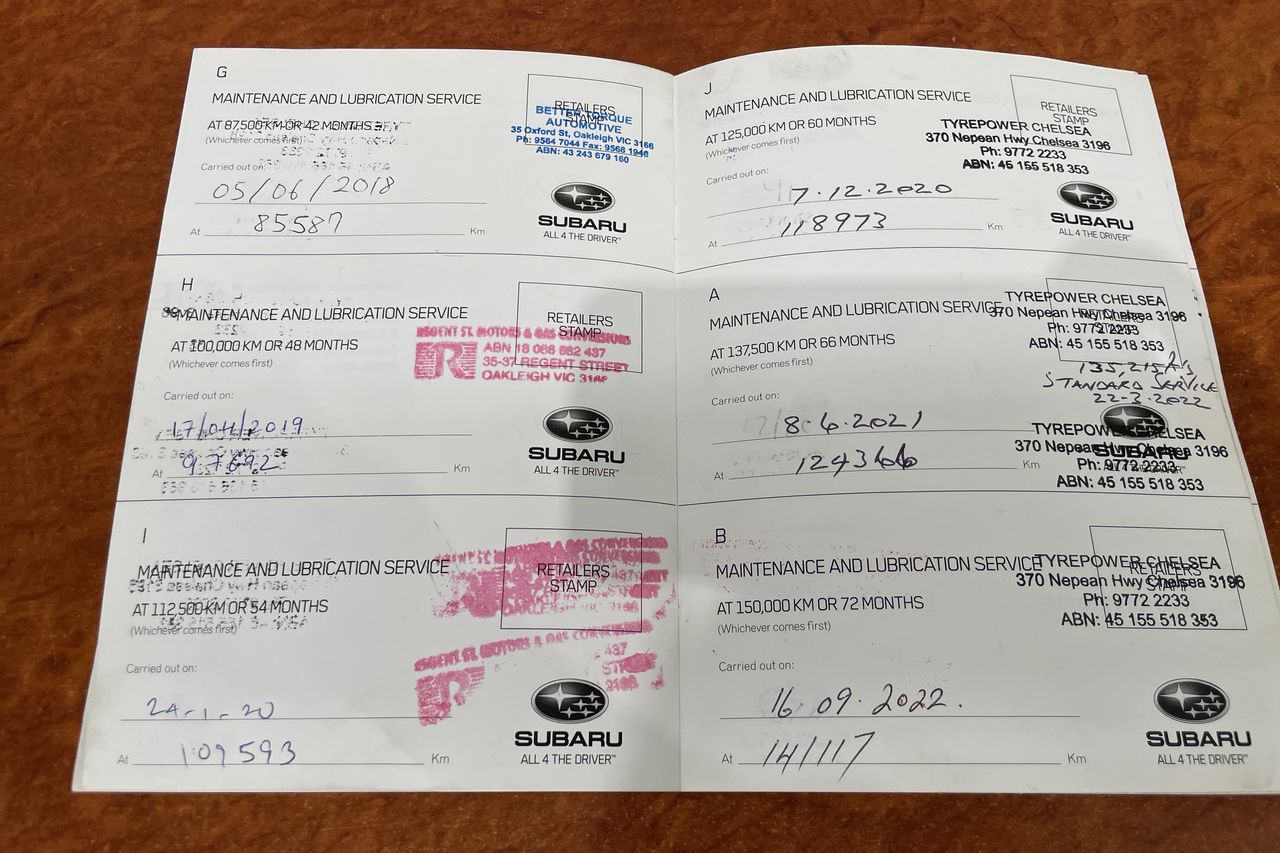 G
MAINTENANCE AND LUBRICATION SERVICE
AT 87,500 KM OR 42 MONTHS
(Whichever comes first)
RETAILERS
STAMP
BETTER TORQUE
AUTOMOTIVE
35 Oxford St, Oakleigh VIC 3166
Ph: 9564 7044 Fax: 9568 1946
ABN: 43 243 679 160
Carried out on:
05/06/2018
At 85587 Km
SUBARU
ALL 4 THE DRIVER™
H
MAINTENANCE AND LUBRICATION SERVICE
AT 100,000 KM OR 48 MONTHS
(Whichever comes first)
RETAILERS
STAMP
REGENT ST. MOTORS & GAS CONVERSIONS
ABN 18 066 682 437
35-37 REGENT STREET
OAKLEIGH VIC 3166
Carried out on:
17/04/2019
At 97692 Km
SUBARU
ALL 4 THE DRIVER™
I
MAINTENANCE AND LUBRICATION SERVICE
AT 112,500 KM OR 54 MONTHS
(Whichever comes first)
RETAILERS
STAMP
REGENT ST. MOTORS & GAS CONVERSIONS
Carried out on:
24-1-20
At 109593 Km
SUBARU
ALL 4 THE DRIVER™
J
MAINTENANCE AND LUBRICATION SERVICE
AT 125,000 KM OR 60 MONTHS
(Whichever comes first)
RETAILERS
STAMP
TYREPOWER CHELSEA
370 Nepean Hwy Chelsea 3196
Ph: 9772 2233
ABN: 45 155 518 353
Carried out on:
7.12.2020
At 118973 Km
SUBARU
ALL 4 THE DRIVER™
A
MAINTENANCE AND LUBRICATION SERVICE
AT 137,500 KM OR 66 MONTHS
(Whichever comes first)
RETAILERS
STAMP
TYREPOWER CHELSEA
370 Nepean Hwy Chelsea 3196
Ph: 9772 2233
ABN: 45 155 518 353
135,215 K's
STANDARD SERVICE
22-3-2022
Carried out on:
8.6.2021
At 124366 Km
SUBARU
TYREPOWER CHELSEA
370 Nepean Hwy Chelsea 3196
Ph: 9772 2233
ABN: 45 155 518 353
B
MAINTENANCE AND LUBRICATION SERVICE
AT 150,000 KM OR 72 MONTHS
(Whichever comes first)
RETAILERS
STAMP
TYREPOWER CHELSEA
370 Nepean Hwy Chelsea 3196
Ph: 9772 2233
ABN: 45 155 518 353
Carried out on:
16.09.2022.
At 141117 Km
SUBARU
ALL 4 THE DRIVER™